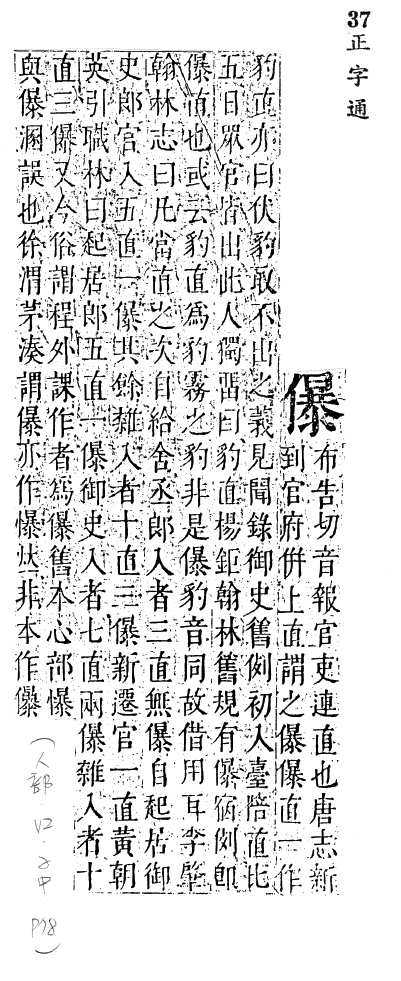 37
正字通
儤
布告切音報官吏連直也唐志新
到官府併上直謂之儤儤直一作
豹直亦曰伏豹取不出之義見聞錄御史舊例初入臺陪直比
五日眾官皆出此人獨畱曰豹直楊鉅翰林舊規有儤宿例卽
儤直也或云豹直爲豹霧之豹非是儤豹音同故借用耳李肇
翰林志曰凡當直之次自給舍丞郎入者三直無儤自起居御
史郎官入五直一儤其餘雜入者十直三儤新遷官一直黃朝
英引職林曰起居郎五直一儤御史入者七直兩儤雜入者十
直三儤又今俗謂程外課作者爲儤舊本心部懪
與儤溷誤也徐渭茅湊謂儤亦作懪𠀤非本作㒔
(人部 子中 P98)